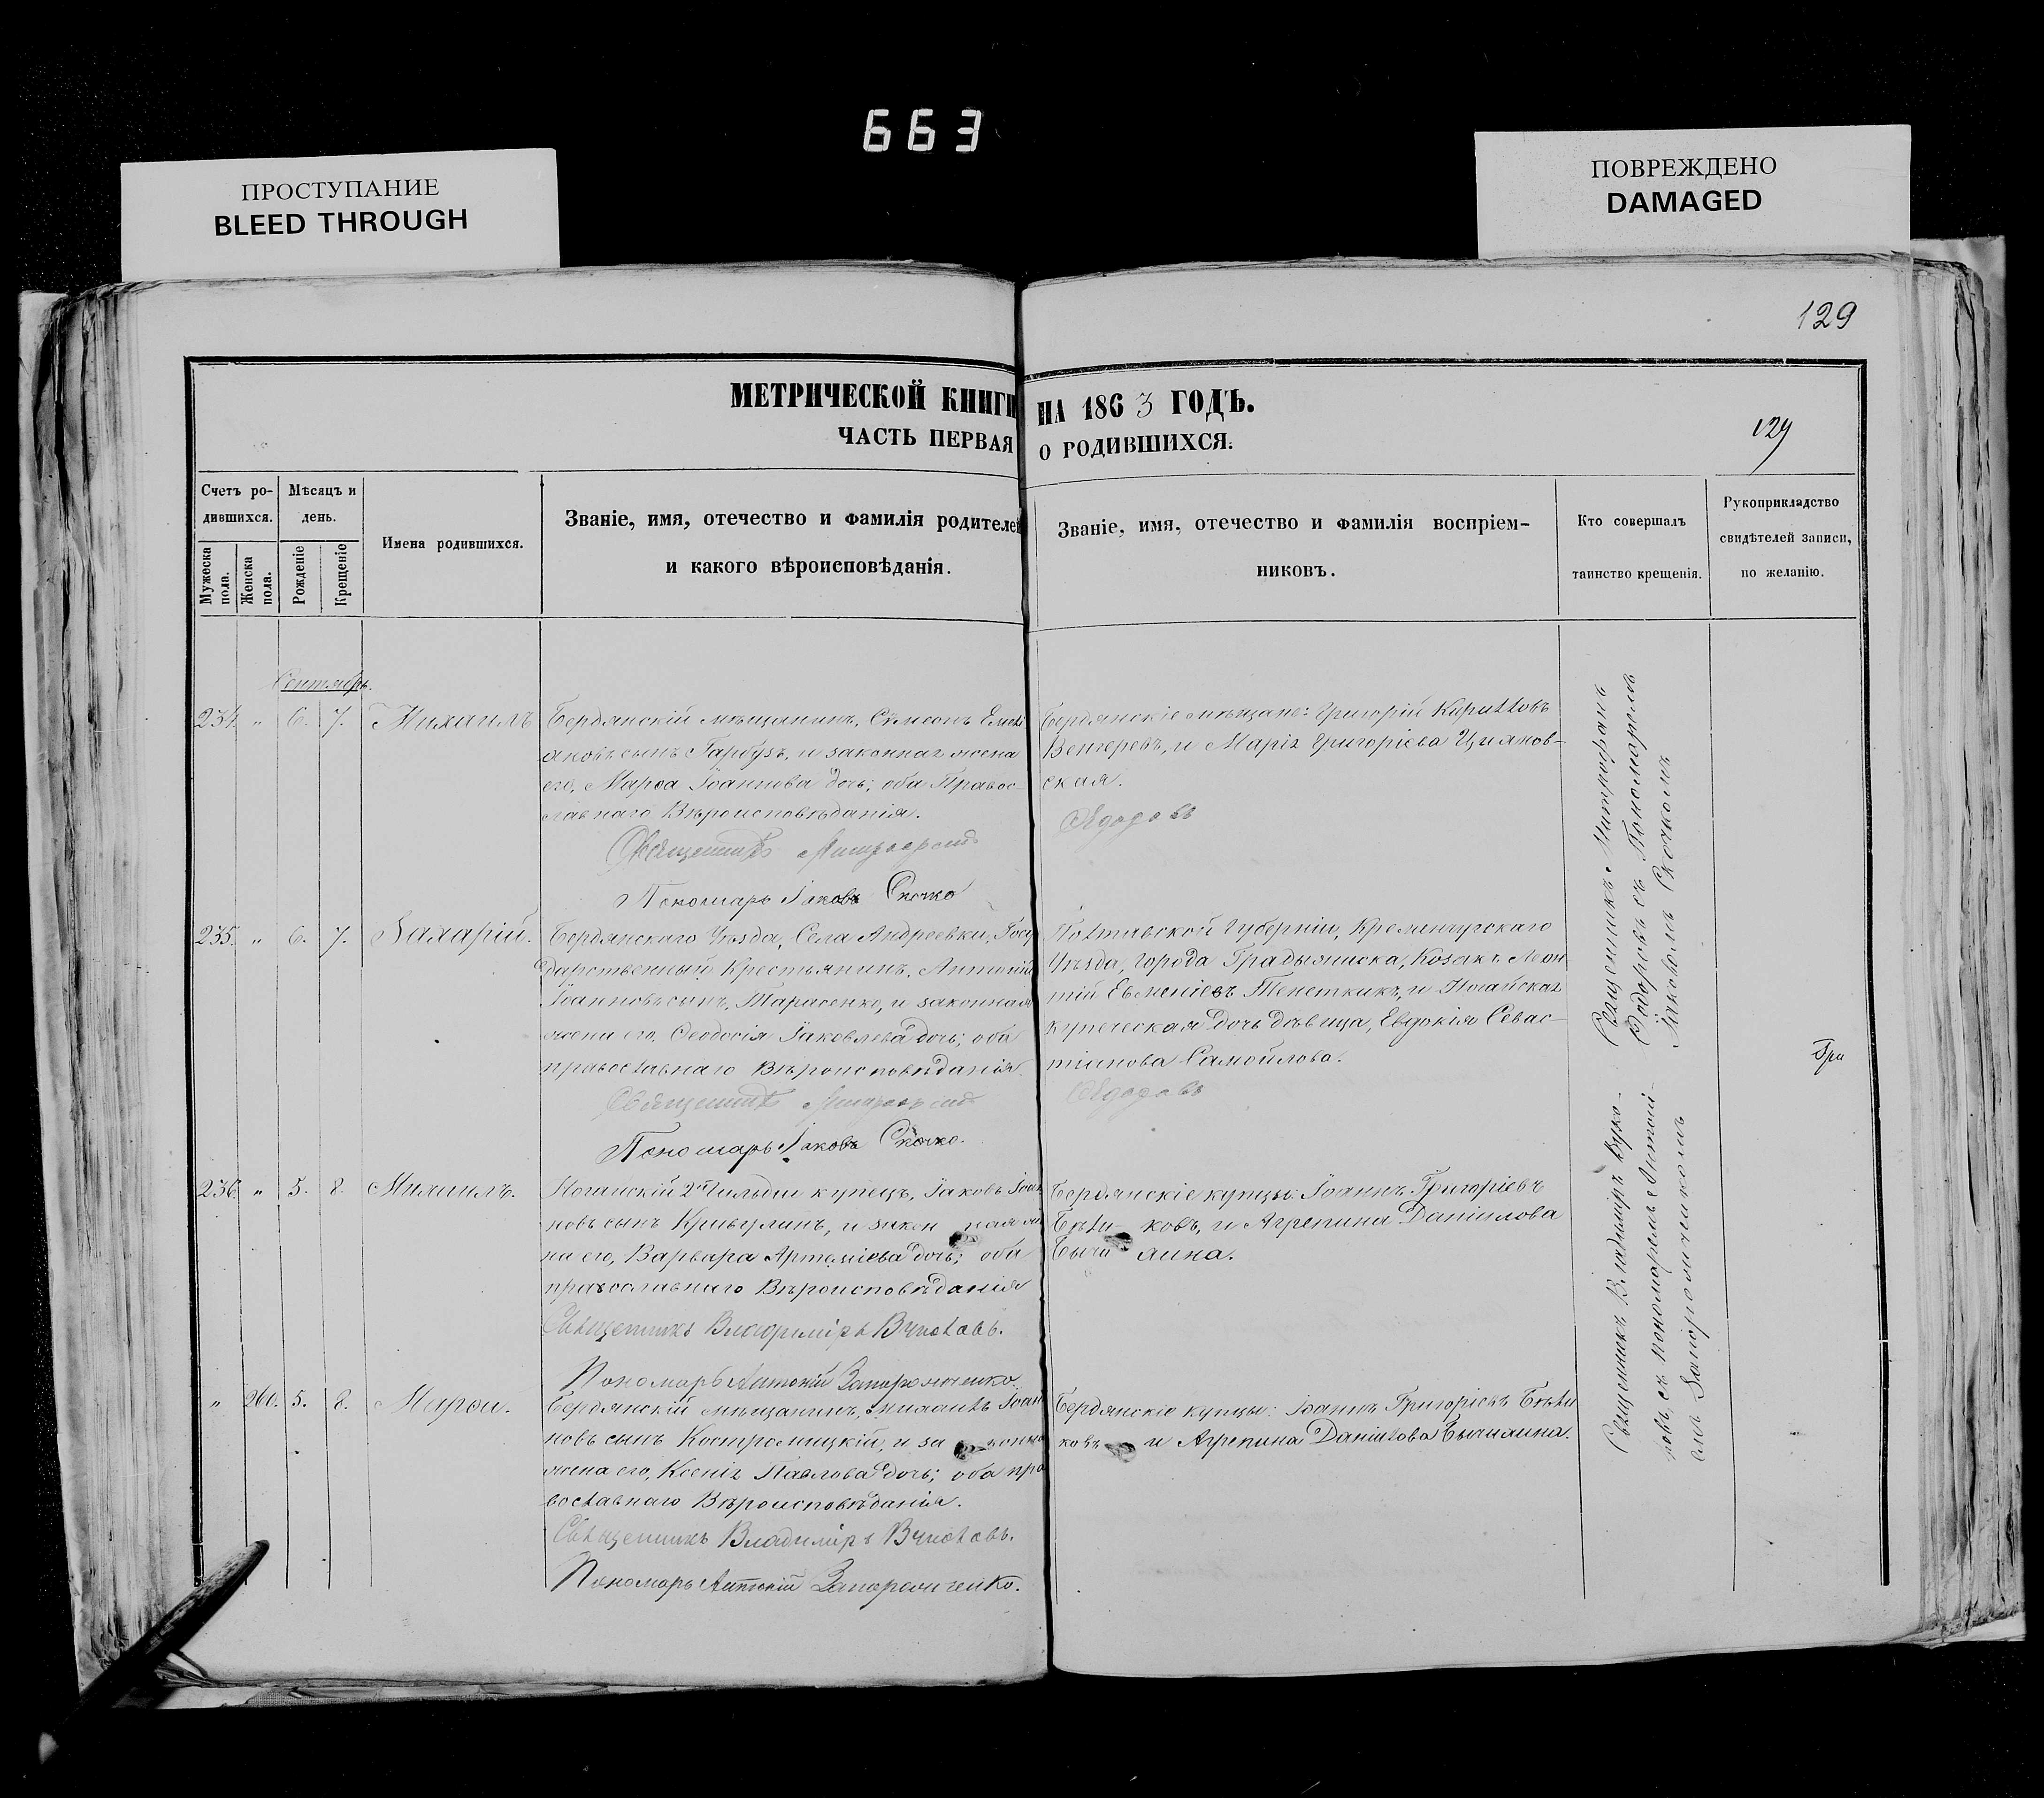 663
ПРОСТУПАНИЕ
BLEED THROUGH
ПОВРЕЖДЕНО
DAMAGED
129
МЕТРИЧЕСКОЙ КНИГИ НА 1863 ГОДЪ.
ЧАСТЬ ПЕРВАЯ О РОДИВШИХСЯ.
129
Счетъ ро-
дившихся.
Мужеска пола.
Женска пола.
Мѣсяцъ и
день.
Рожденіе
Крещеніе
Имена родившихся.
Званіе, имя, отечество и фамилія родителей
и какого вѣроисповѣданія.
Званіе, имя, отечество и фамилія воспріем-
никовъ.
Кто совершалъ
таинство крещенія.
Рукоприкладство
свидѣтелей записи,
по желанію.
Сентябрь.
234 " 6. 7. Михаилъ
Бердянскій мѣщанинъ, Сѵмеонъ Емелі
ановъ сынъ Гарбузъ, и законная жена
его, Марѳа Іоаннова дочь; оба Правос-
лавнаго Вѣроисповѣданія.
Священникъ
Пономарь Іаковъ Скочко
Бердянскіе мѣщане: Григорій Кирилловъ
Венгеревъ, и Марія Григоріева Циянов-
ская.
Ѳедоровъ
235. " 6. 7. Захарій.
Бердянскаго Уѣзда, Села Андреевки, Госу
дарственный Крестьянинъ, Антоній
Іоанновъ сынъ, Тарасенко, и законная
жена его, Ѳеодосія Іаковлева дочь; оба
православнаго Вѣроисповѣданія.
Священникъ
Пономарь Іаковъ Скочко.
Полтавской Губерніи, Кременчугскаго
Уѣзда, Города Градыжиска, Козакъ Леон
тій Евменіевъ и Ногайская
купеческая дочь дѣвица, Евдокія Севас-
тіанова Самойлова.
Ѳедоровъ
236. " 5. 8. Михаилъ.
Ногайскій 2й Гильдіи купецъ, Іаковъ Іоан
новъ сынъ Кривулинъ, и закон ная же
на его, Варвара Артеміева дочь; оба
православнаго Вѣроисповѣданія
Священникъ Владиміръ Вуколовъ.
Пономарь Антоній Запорожченко.
Бердянскіе купцы: Іоаннъ Григоріевъ
Бѣли- ковъ, и Агрепина Даніилова
Бычи хина.
" 260. 5. 8. Марѳа.
Бердянскій мѣщанинъ, Михаилъ Іоан
новъ сынъ Костромицкій, и за конна
жена его, Ксенія Павлова дочь; оба пра
вославнаго Вѣроисповѣданія.
Священникъ Владиміръ Вуколовъ.
Пономарь Антоній Запорожченко.
Бердянскіе купцы: Іоаннъ Григоріевъ Бѣли
ковъ и Агрепина Даніилова Бычихина.
Священникъ Митрофанъ
Ѳедоровъ съ Пономаремъ
Іаковомъ Скочкомъ
Священникъ Владиміръ Вуко-
ловъ, съ пономаремъ Антоні-
емъ Запорожченкомъ
Гри